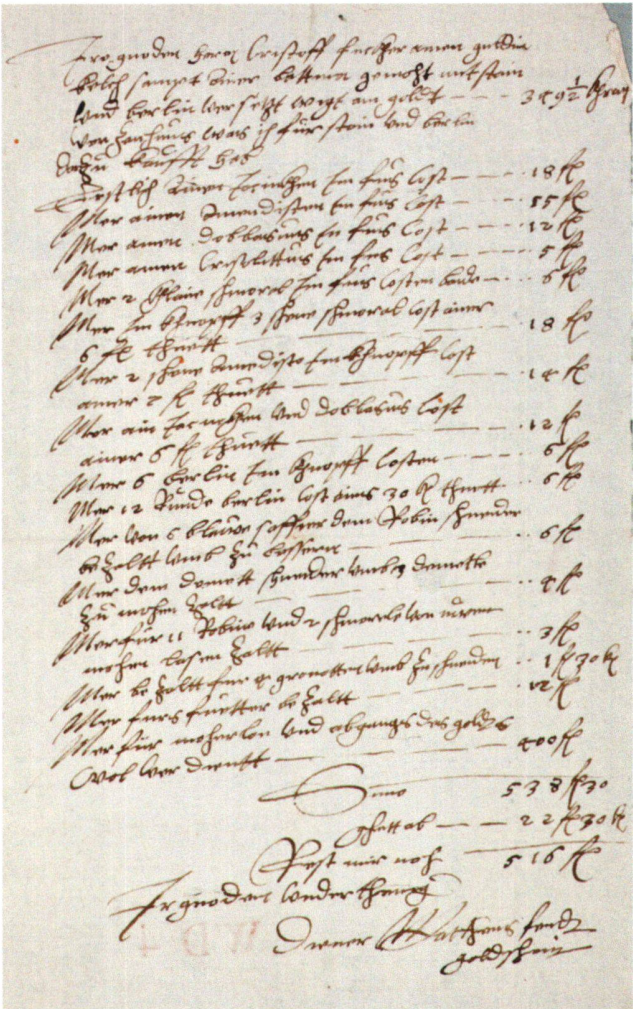 Iro gnoden herrn Cristoff fuckher ainen guldin
kelch sampt ainer bettinen gemacht mit stain
und berlin versetzt wigt an goldt — — — 3 4 9 ½ khron
was ich für stain und berlin
darzu kaufft hab
Erstlich ainen Jacinkhen im fus cost — — — . 18 fl
Mer ainen Amadisten im fus cost — — — .. 55 fl
Mer ainen doblasius im fus cost — — .. 12 fl
Mer ainen Crisolittus im fus cost — — .. 5 fl
Mer 2 klaine schmaral im fus costen baide — .. 6 fl
Mer im khnopff 3 schene schmaral cost ainer
6 fl thuett — — — .. 18 fl
Mer 2 schene Amadisto im khnopff cost
ainer 7 fl thuett — — — . 14 fl
Mer ain Jacinkhen und doblasius cost
ainer 6 fl thuett — — — .. 12 fl
Mer 6 berlin im khnopff costen — — .. 6 fl
Mer 12 Runde berlin cost ains 30 k thuett .. 6 fl
Mer von 6 blauve saffier dem Robin schneider
bezaltt umb zu bessern — — — .. 6 fl
Mer dem demott schneider umb 3 demotte
zu mohen zaltt — — — .. 4 fl
Mer für 11 Robin und 2 schmarale von
mohen lasen zaltt — — — .. 3 fl
Mer bezaltt fur 4 gronotten umb zu schneiden .. 1 fl 30 k
Mer furs fuetter bezaltt — — — . 12 fl
Mer fur moherlon und abgangs des golds
wol verdientt — — — 400 fl
Suma 538 fl 30
ghett ab — — 22 fl 30 k
Rest mir noh — 516 fl
Ir gnoden underthenig
Diener Mattheus fendt
goldschmit